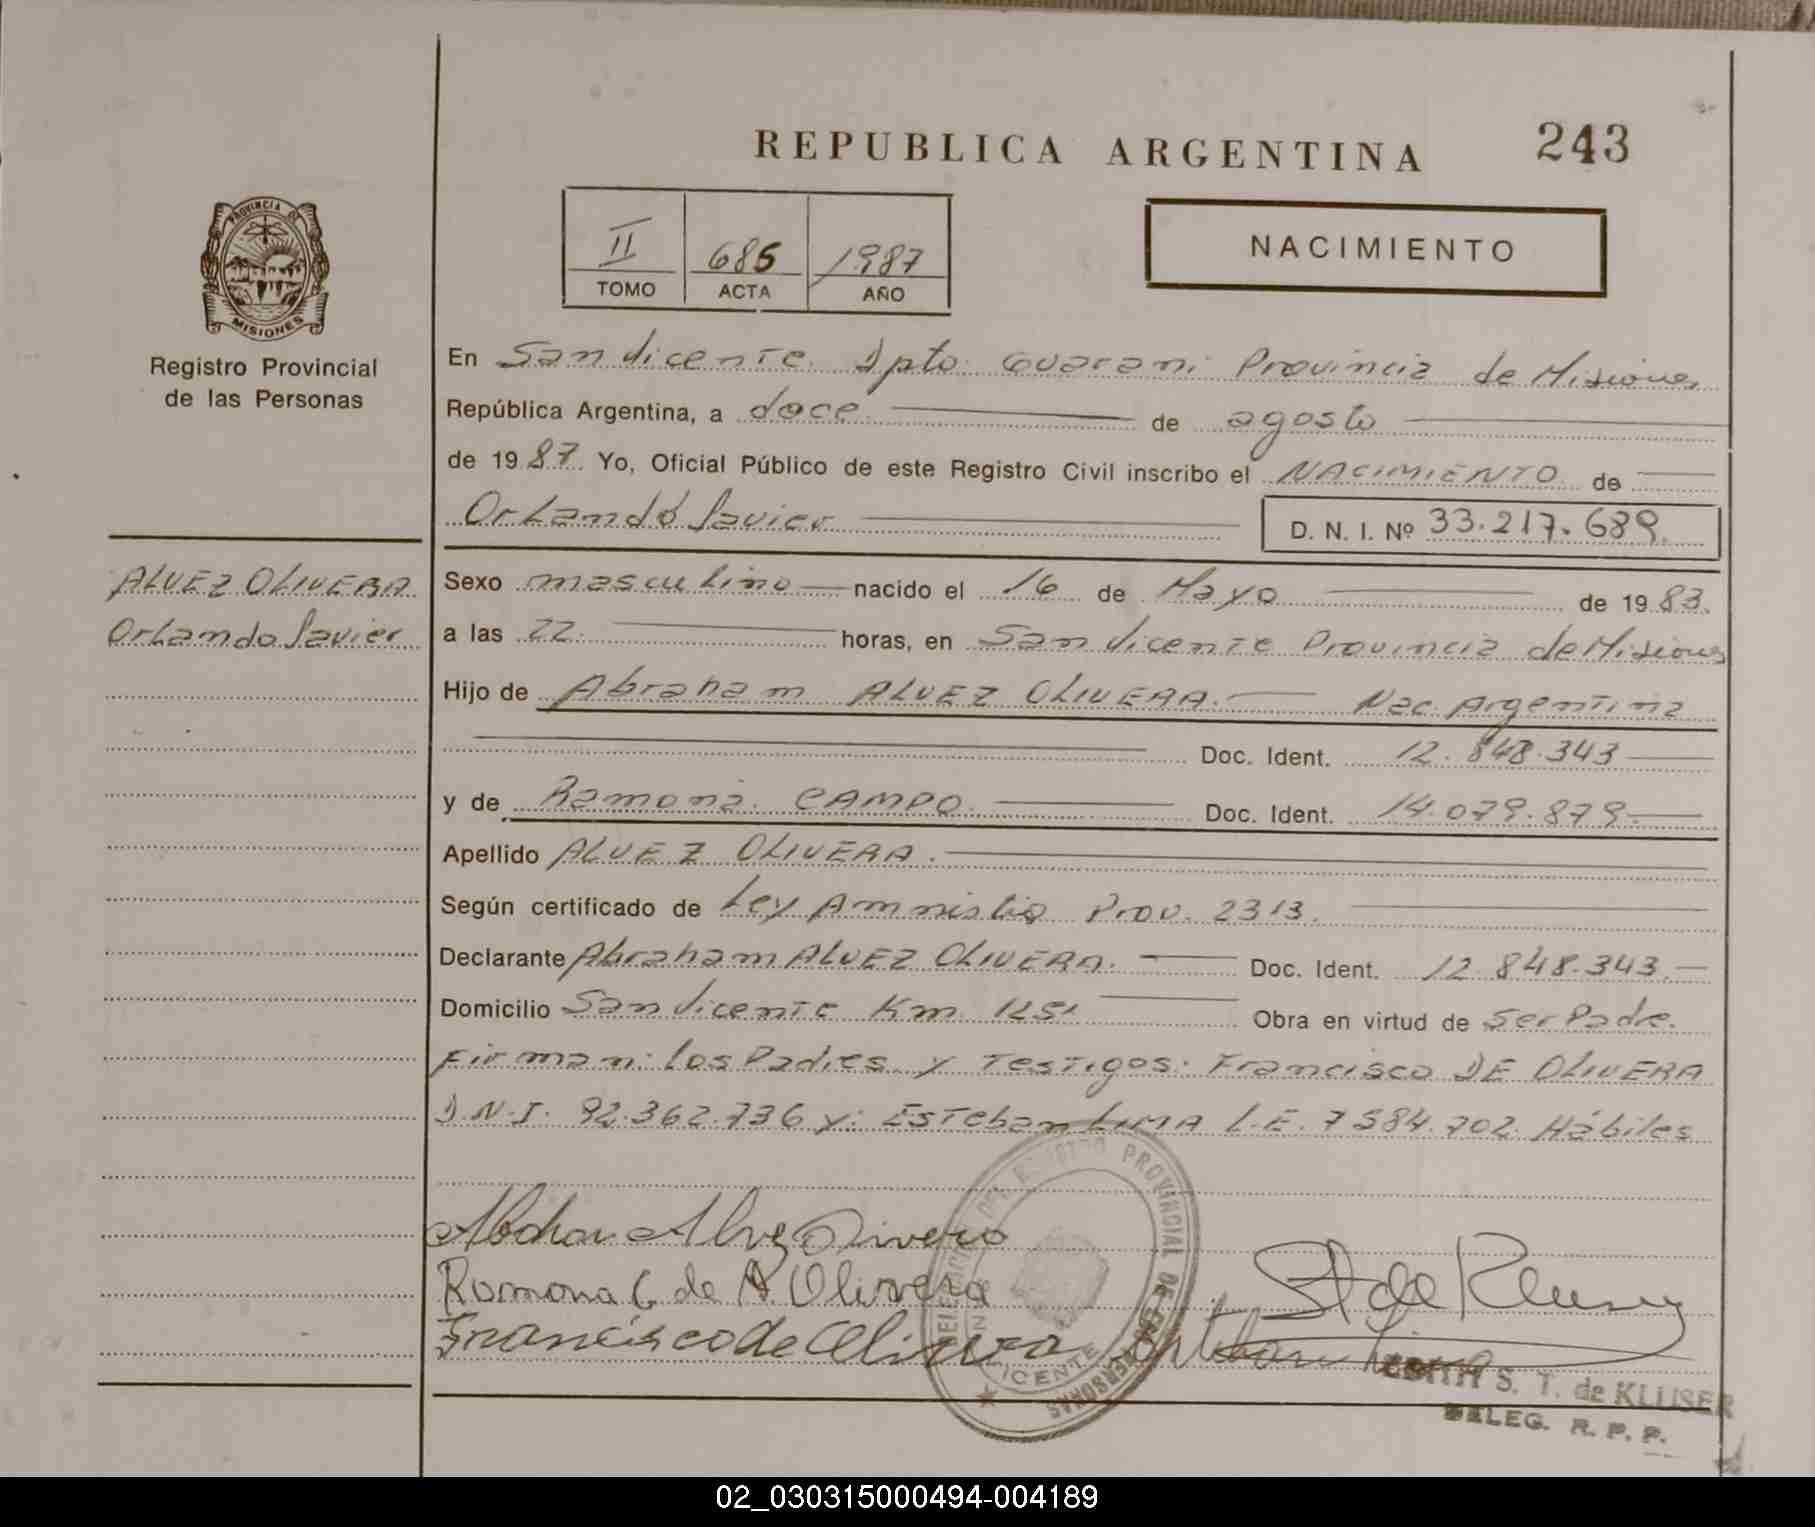 REPUBLICA ARGENTINA
243
II
685
1987
TOMO
ACTA
AÑO
NACIMIENTO
PROVINCIA DE
MISIONES
Registro Provincial
de las Personas
En San Vicente. Dpto. Guarani Provincia de Misiones
República Argentina, a doce de agosto
de 1987. Yo, Oficial Público de este Registro Civil inscribo el NACIMIENTO de
Orlando Javier D. N. I. Nº 33.217.689.
ALVEZ OLIVERA
Orlando Javier
Sexo masculino nacido el 16 de Mayo de 1983.
a las 22 horas, en San Vicente Provincia de Misiones
Hijo de Abraham ALVEZ OLIVERA. Nac. Argentina
Doc. Ident. 12.848.343
y de Ramona CAMPO Doc. Ident. 14.079.879
Apellido ALVEZ OLIVERA.
Según certificado de Ley Amnistia Prov. 2313.
Declarante Abraham ALVEZ OLIVERA. Doc. Ident. 12.848.343.
Domicilio San Vicente Km. Obra en virtud de Ser Padre.
Firman: Los Padres y Testigos: Francisco DE OLIVERA
D.N.I. 92.362.736 y: Esteban LIMA L.E. 7584.702 Hábiles
Alvez Olivera
Ramona C de A. Olivera
Francisco de Olivera
S. T. de Kluser
S. T. de KLUSER
DELEG. R. P. P.
02_030315000494-004189